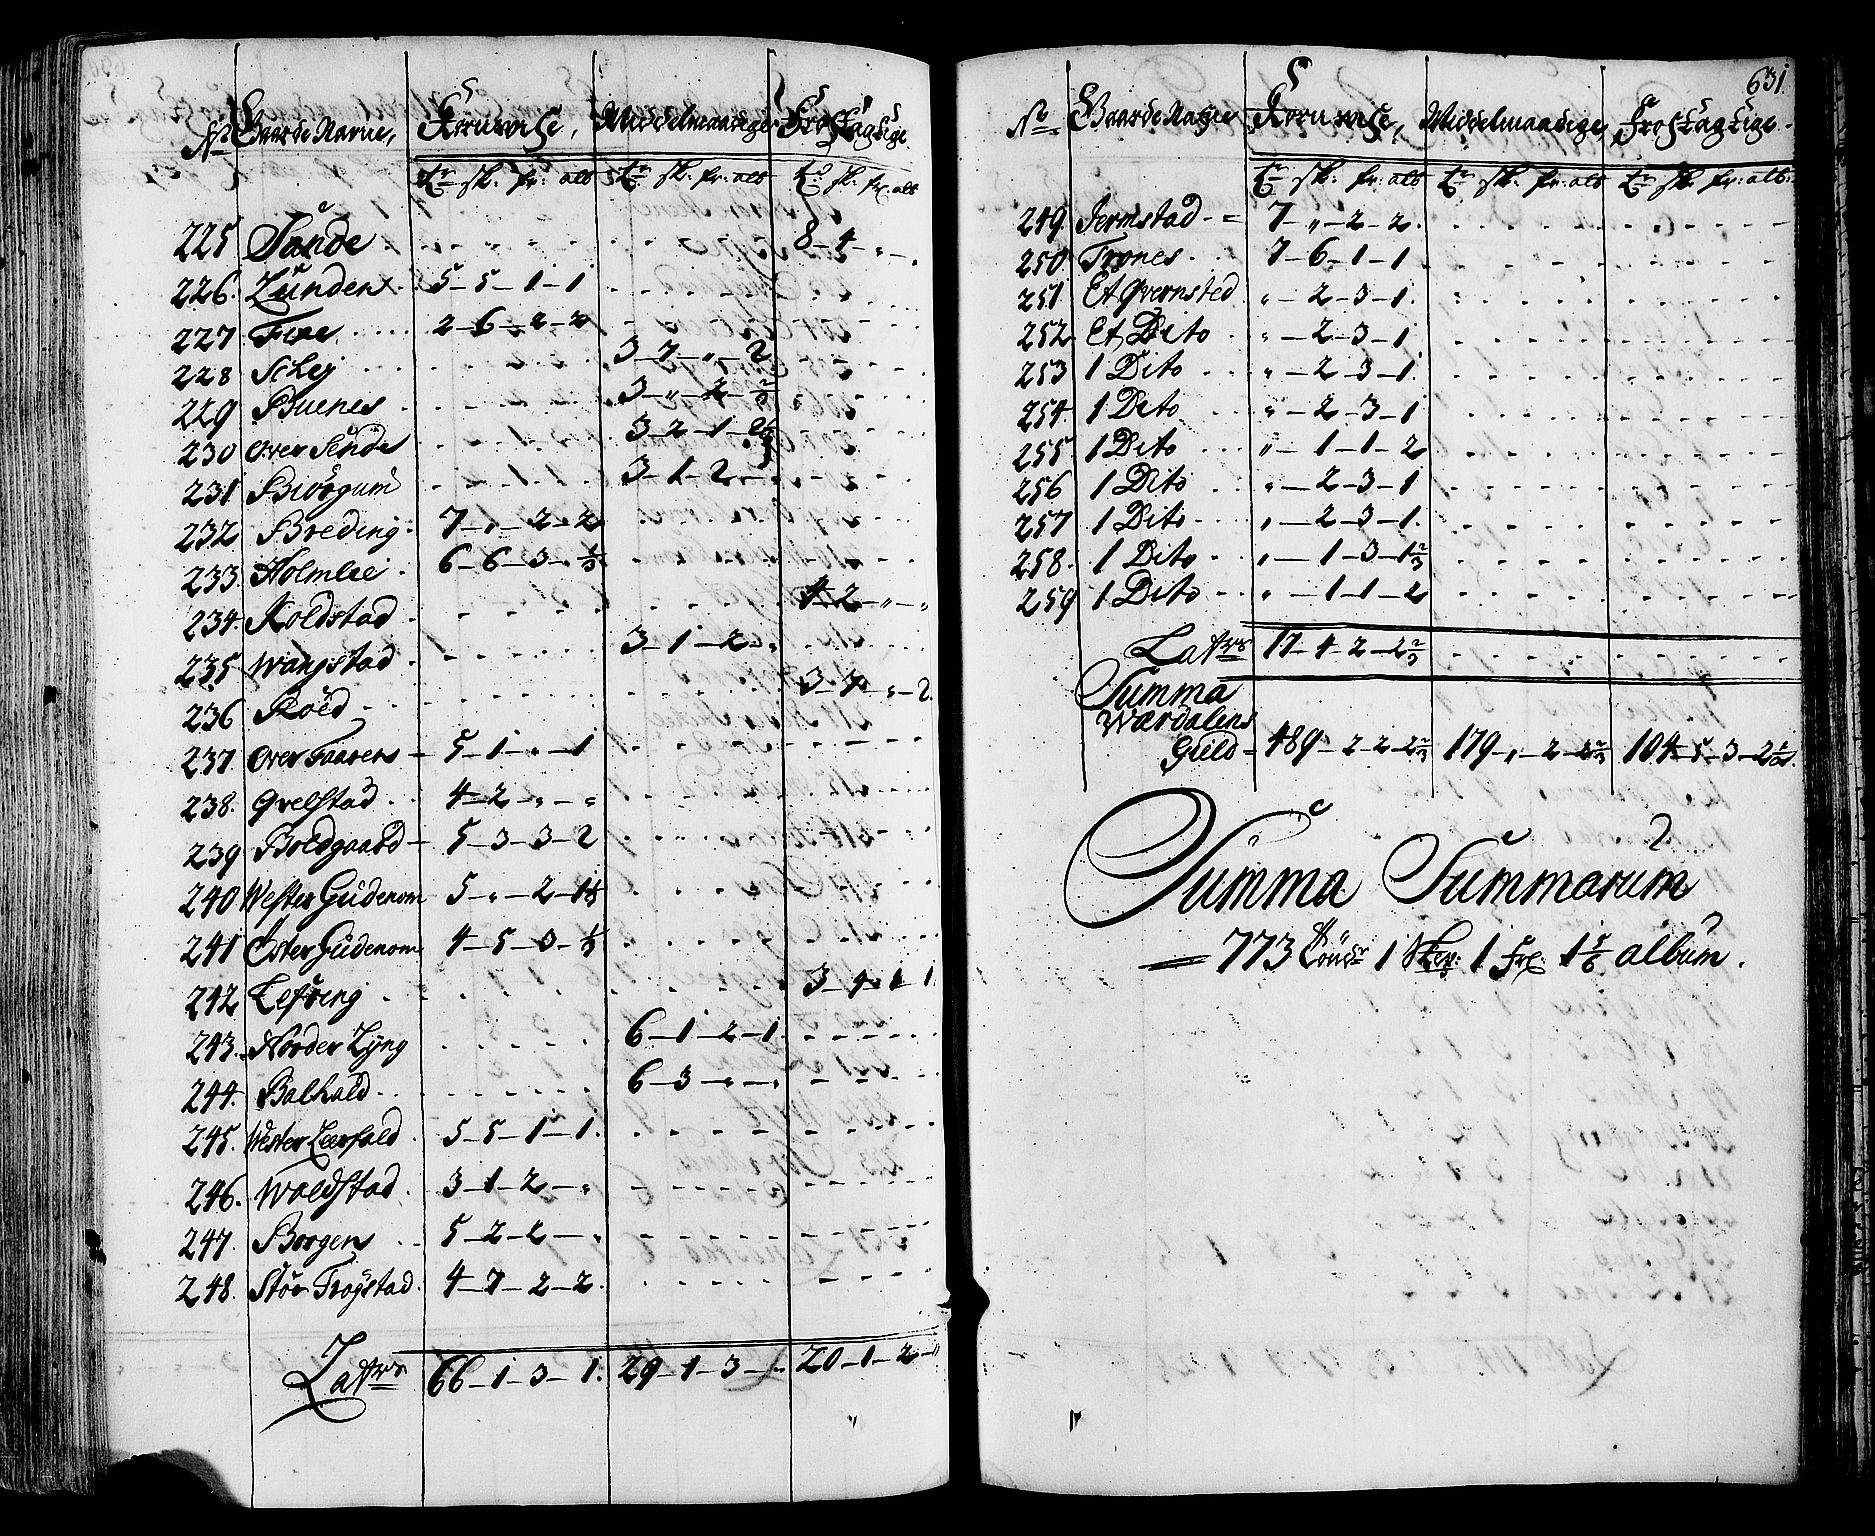 No Gaarde Navne, Kornvisse, Middelmaadige Frostagtige
tr sk: fr: alb tr sk: fr: alb tr sk: fr: alb
225 Sande 8-4-„-
226. Lunden 5-5-1-1
227 Fixe 2-6-2-2
228 Schej 3-7-„-2
229 Buenes 3-„-2-⅔
230 Over Sende 3-2-1-
231 Biörgum 3-1-2-
232 Breding 7-„-2-2
233 Holmlie 6-6-3-⅓
234. Koldstad 4-2-„-„
235. Wangstad 3-1-2-„
236 Röed 3-7-„-2
237. Over Faaren 5-1-„-1
238. Qvelstad 4-2-„-„
239 Boldgaard 5-3-3-2
240 Wester Gudenom 5-„-2-1⅓
241 Öster Gudenom 4-5-3-⅓
242 Lefring 3-4-1-1
243. Nörder Lyng 6-1-2-1
244. Balhald 6-3-„-„
245. Wester Leerfald 5-5-1-1.
246. Woldstad 3-1-2-„
247. Borgen 5-2-2-„
248. Stör Trögstad 4-7-2-2
Latus 66-1-3-1. 29-1-3- 20-1-2-„
631
No Gaarde Nafne Kornvisse, Middelmaadige, Frostagtige.
tr sk: fr: alb tr sk: fr: alb tr sk: fr: alb:
249. Jermstad 7-„-2-2.
250. Trones 7-6-1-1
251 Et Qvernsted „-2-3-1.
252. Et Dito „-2-3-1
253 1 Dito „-2-3-1
254. 1 Dito „-2-3-1
255. 1 Dito „-1-1-2
256 1 Dito „-2-3-1
257 1 Dito „-2-3-1.
258. 1 Dito „-1-3-1⅔
259 1 Dito „-1-1-2
Latus 17-4-2-2⅔
Summa
Wærdalens
Gield 489-2-2-2⅔ 179-„-2- 104-5-3-2½.
Summa Summarum
= 773 Tönder 1 Skp: 1 Frl: 1⅚ album.